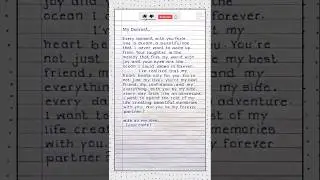 My Dearest,
Every moment with you feels
like a dream, a beautiful one
that I never want to wake up
from. Your laughter is the
melody that fills my world with
joy and your eyes are like
ocean I could drown in forever.
I've realized that my
heart beats only for you. You're
not just my love, you're my best
friend, my confidante, and my
everything. With you by my side
every day feels like an adventure.
I want to spend the rest of my
life creating beautiful memories
with you. Will you be my forever
partner?
With all my love,
[Your name]